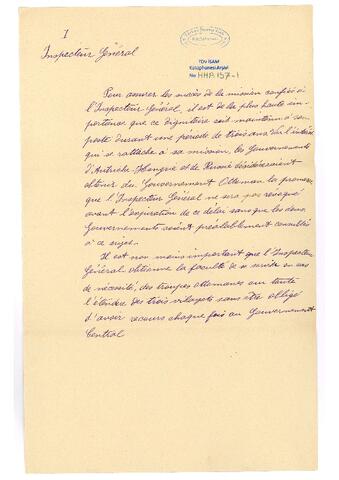 I
Inspecteur Général
TDV İSAM
Kütüphanesi Arşivi
No HHP 157-1
Pour assurer les succès de la mission confiée à
l'Inspecteur Général, il est de la plus haute im-
portance que ce dignitaire soit maintenu à son
poste durant une période de trois ans. Vu l'intérêt
qui se rattache à sa mission, les Gouvernements
d'Autriche-Hongrie et de Russie désireraient
obtenir du Gouvernement Ottoman la promesse
que l'Inspecteur Général ne sera pas révoqué
avant l'expiration de ce délai sans que les deux
Gouvernements soient préalablement consultés
à ce sujet.
Il est non moins important que l'Inspecteur
Général obtienne la faculté de se servir en cas
de nécessité, des troupes ottomanes sur toute
l'étendue des trois vilayets sans être obligé
d'avoir recours chaque fois au Gouvernement
Central